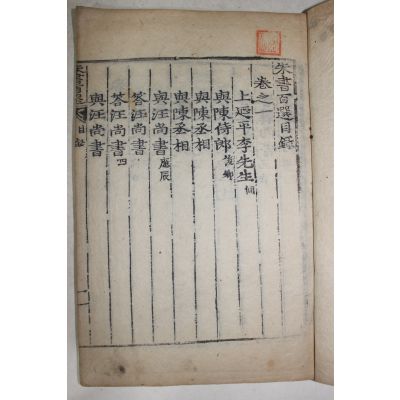 朱書百選目錄
卷之一
上延平李先生侗
與陳侍郎俊卿
與陳丞相
與陳丞相
與汪尚書應辰
答汪尚書
答汪尚書四
與汪尚書
朱書百選
目錄
一